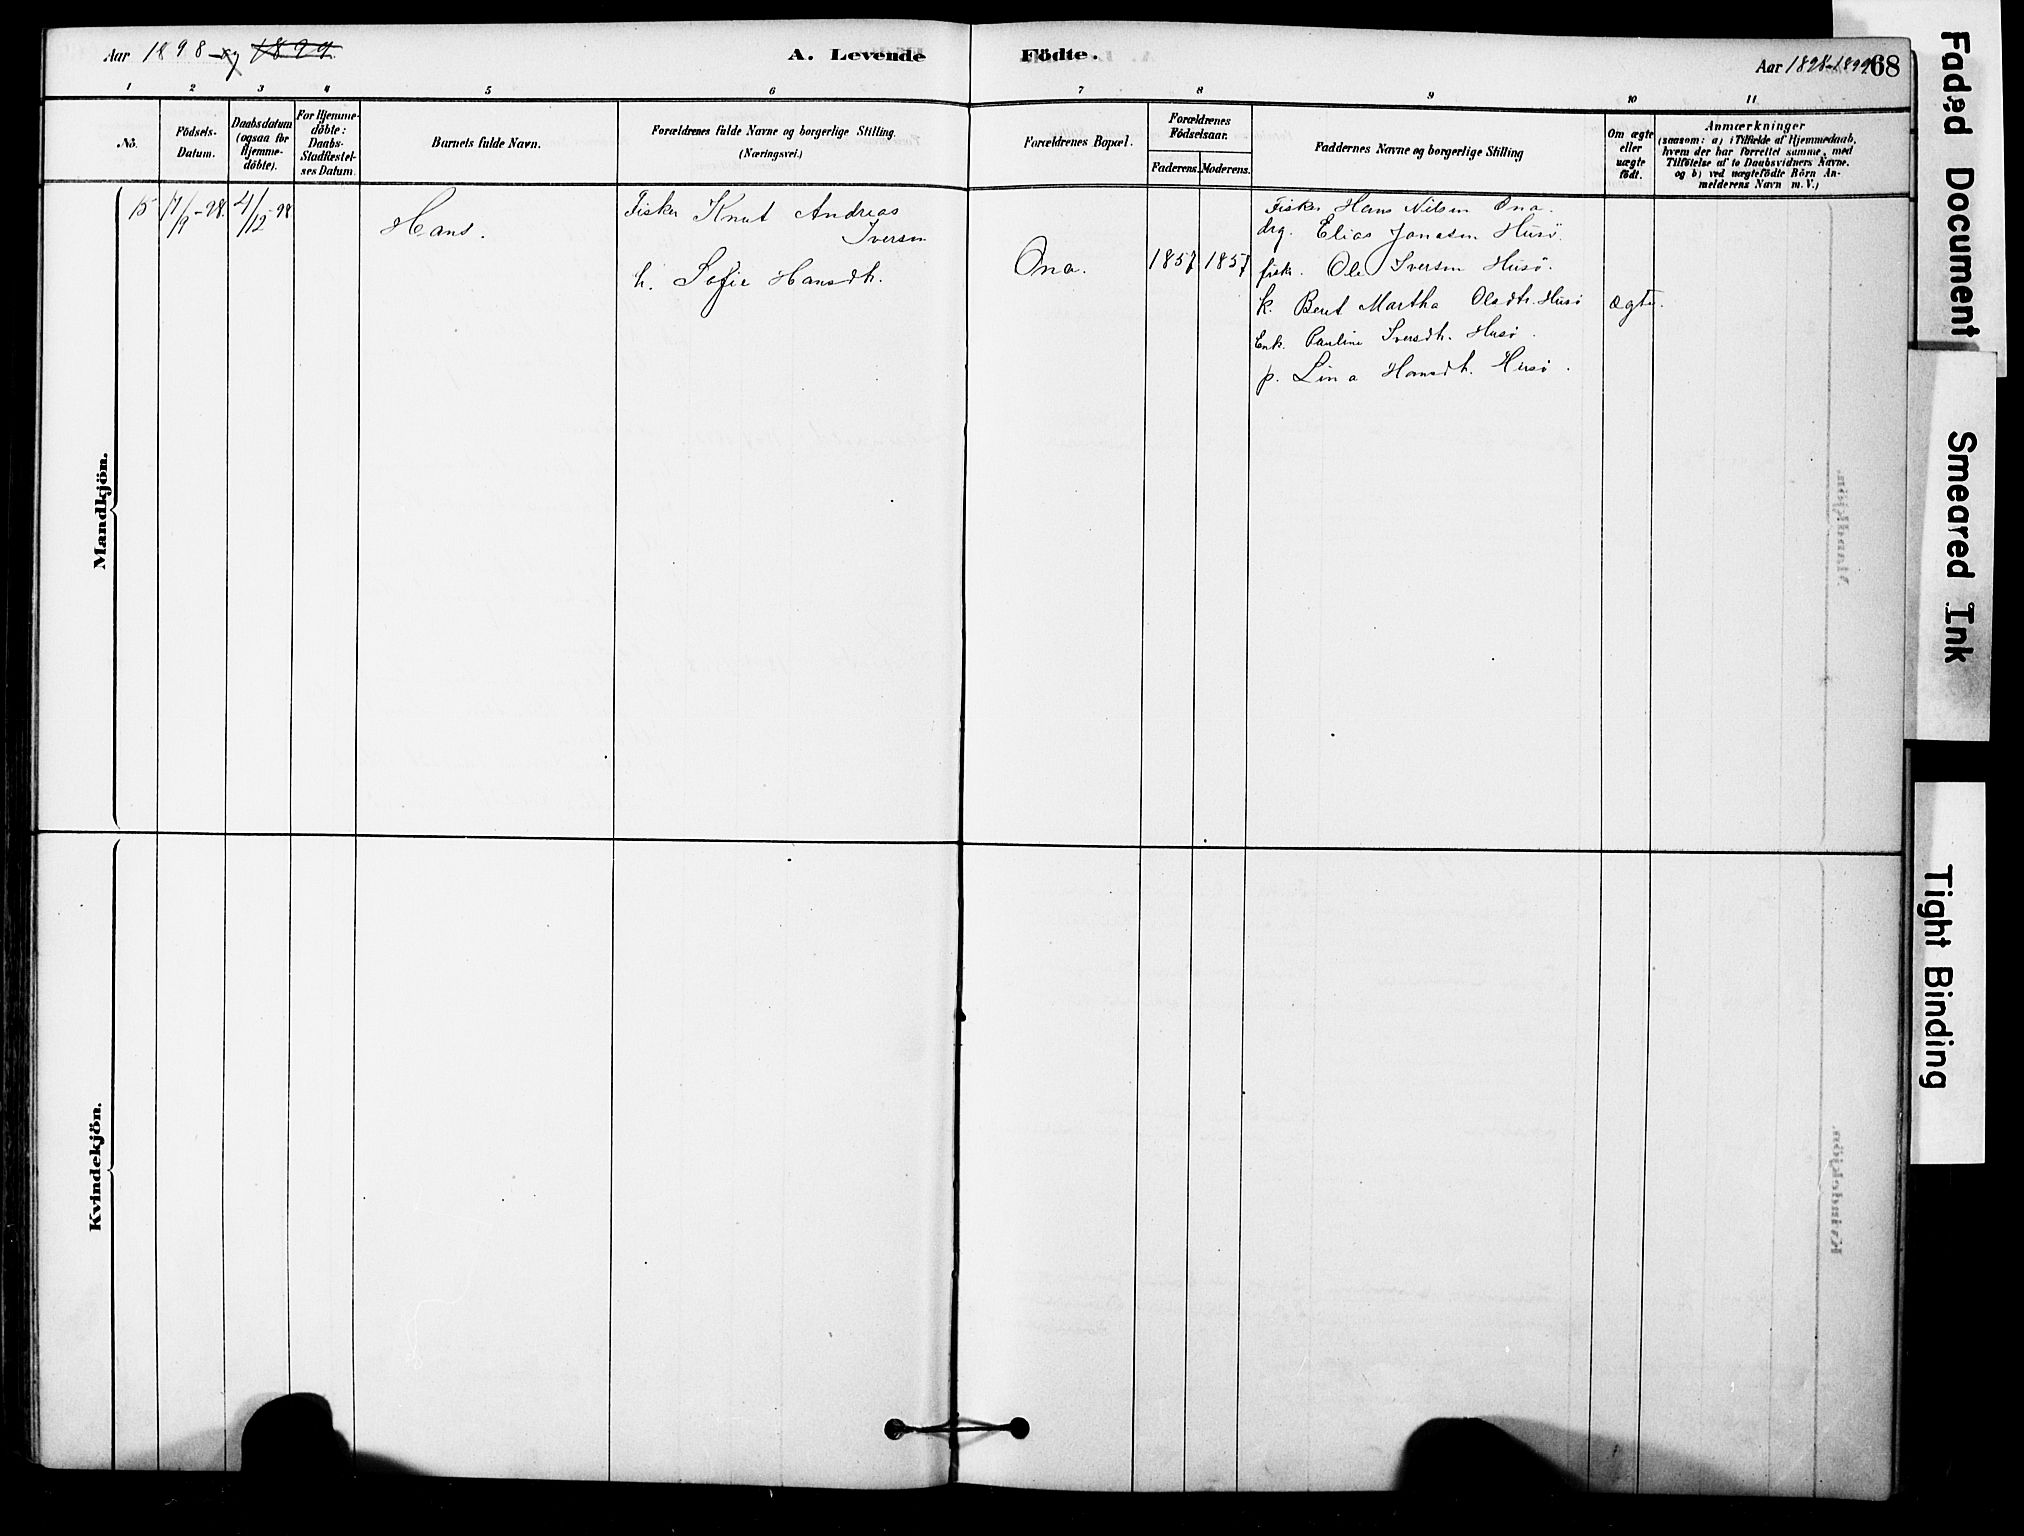 Aar 1898 og 1899
A. Levende Födte.
Aar 1898-1899
68
1 2 3 4 5 6 7 8 9 10 11
No.
Födsels-
Datum.
Daabsdatum
(ogsaa for
Hjemme-
döbte).
For Hjemme-
döbte:
Daabs-
Stadfæstel-
ses Datum.
Barnets fulde Navn.
Forældrenes fulde Navne og borgerlige Stilling.
(Næringsvei.)
Forældrenes Bopæl.
Forældrenes
Födselsaar.
Faderens. Moderens.
Faddernes Navne og borgerlige Stilling
Om ægte
eller
uægte
födt.
Anmærkninger
(saasom: a) i Tilfælde af Hjemmedaab,
hvem der har forrettet samme, med
Tilföielse af to Daabsvidners Navne.
og b) ved uægtefödte Börn An-
melderens Navn m. V.)
Mandkjön.
15 17/9-98. 4/12-98
Hans.
Fisker Knut Andreas
Iversen
h. Sofie Hansdt.
Ona.
1857 1857
Fisker Hans Nilsen Ona.
drg. Elias Jonasen Husö.
fisk. Ole Iversen Husö.
k. Berit Martha Olsdtr. Husö
Enk. Pauline Iversdt. Husö.
p. Lina Hansdt. Husö.
ægte.
Kvindekjön.
Faded Document
Smeared Ink
Tight Binding